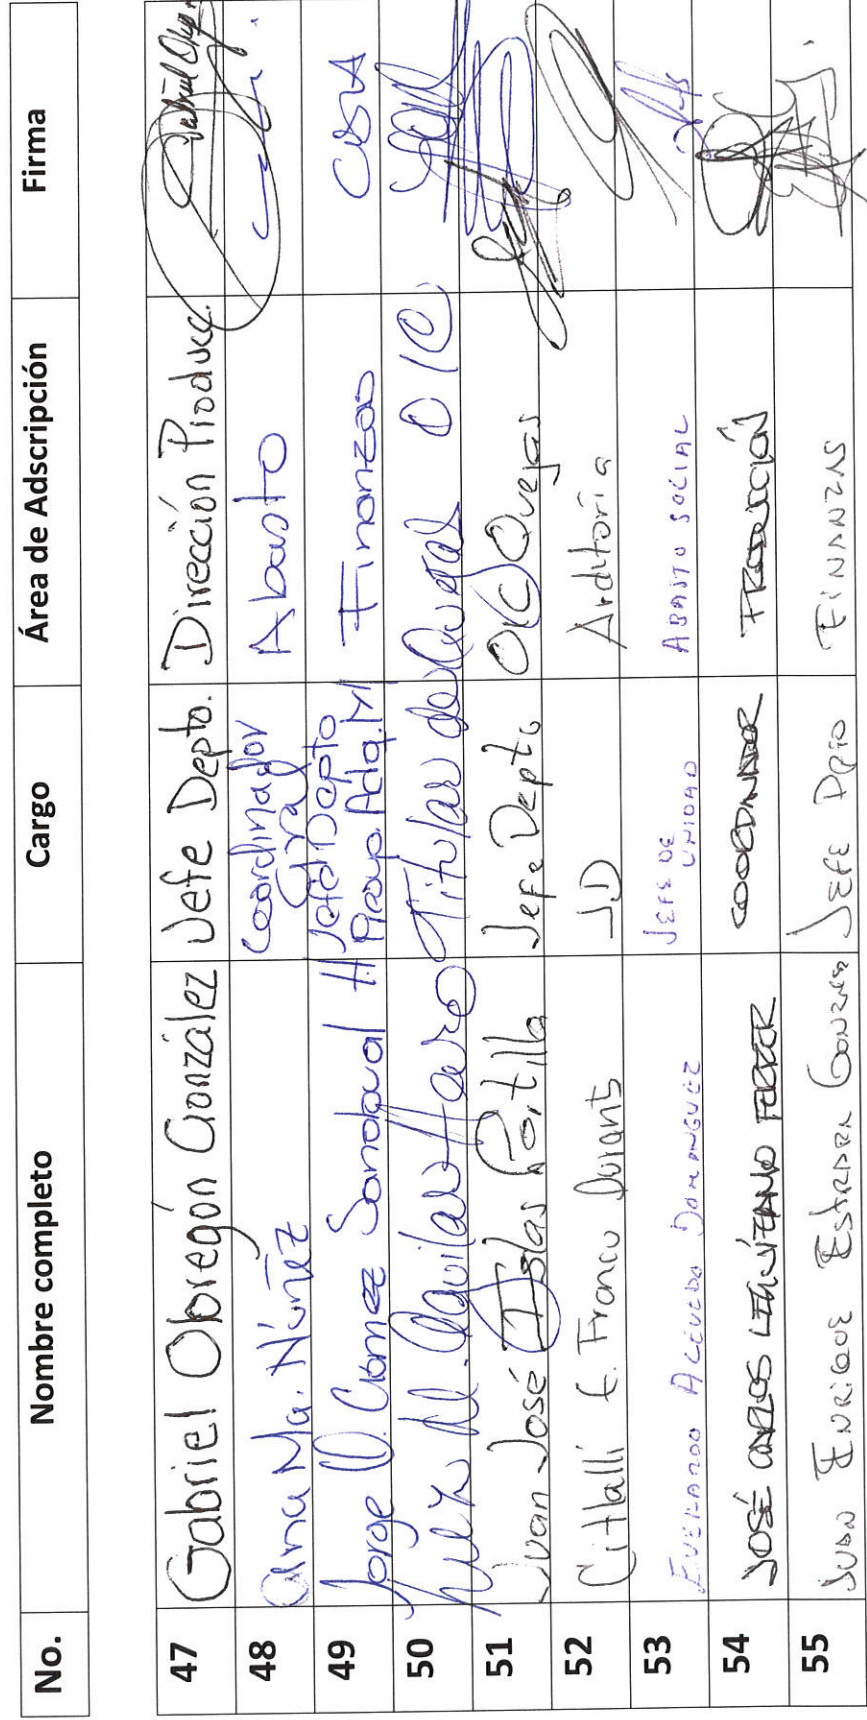 No. Nombre completo Cargo Área de Adscripción Firma
47 Gabriel Obregón González Jefe Depto. Dirección Producc.
48 Ana Ma. Núñez Coordinador Gral Abasto
49 Jorge D. Gómez Sandoval H Jefe Depto Finanzas
50 M. Aguilar Haro Titular de Quejas OIC
51 Juan José Islas Portilla Jefe Depto OIC Quejas
52 Citlalli E. Franco JD Auditoría
53 Everardo Acevedo Domínguez JEFE DE UNIDAD ABASTO SOCIAL
54 JOSÉ CARLOS FERRER COORDINADOR PRODUCCIÓN
55 JUAN ENRIQUE ESTRADA GONZALEZ JEFE DPTO FINANZAS